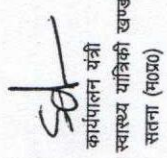 Sd/
कार्यपालन यंत्री
स्वास्थ्य यांत्रिकी खण्ड
सतना (म०प्र०)